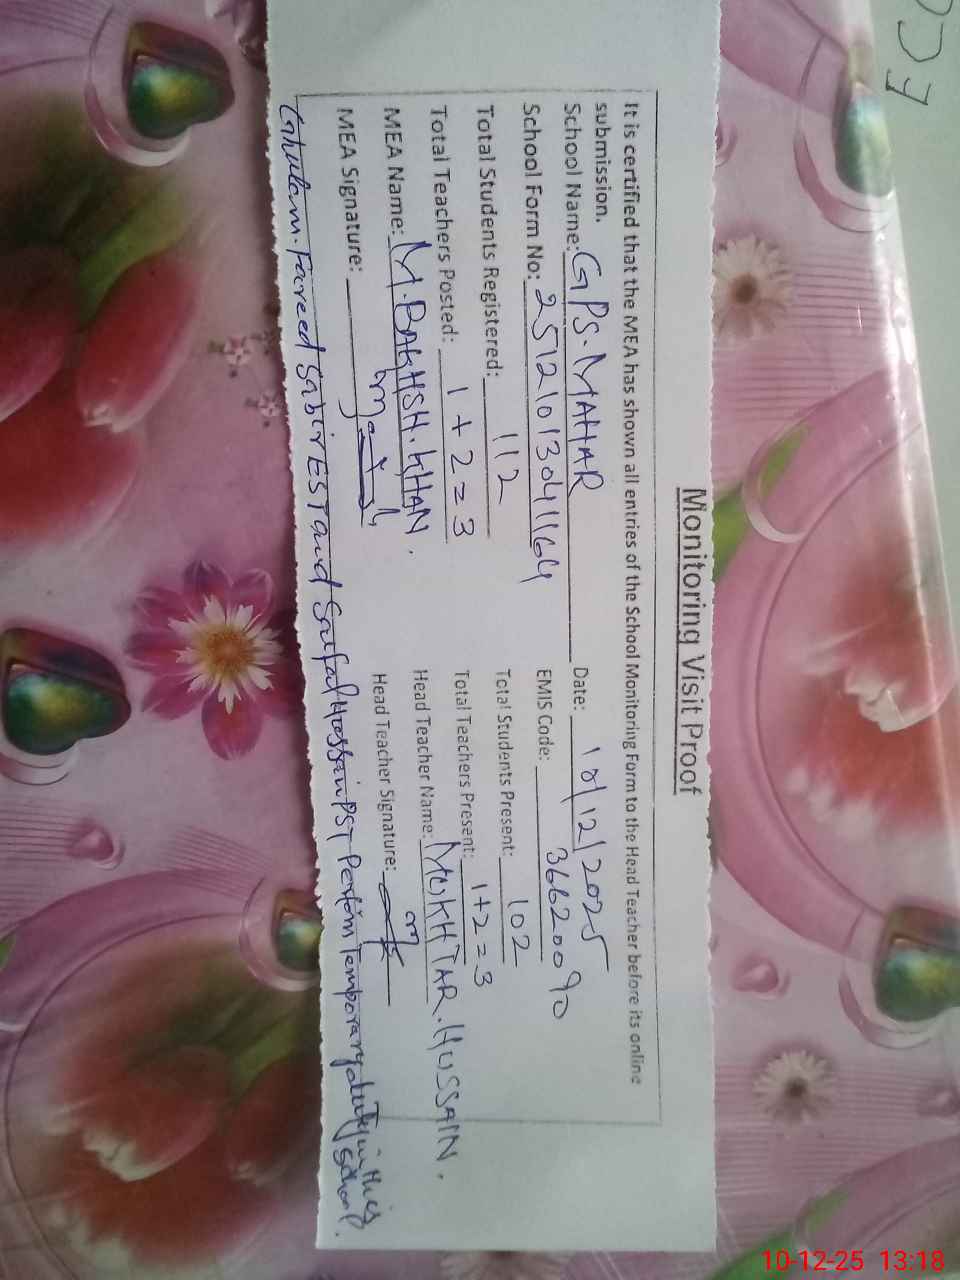 Monitoring Visit Proof
It is certified that the MEA has shown all entries of the School Monitoring Form to the Head Teacher before its online
submission.
School Name: GPS. MAHAR Date: 10/12/2025
School Form No: 251210130411664 EMIS Code: 36620090
Total Students Registered: 112 Total Students Present: 102
Total Teachers Posted: 1+2=3 Total Teachers Present: 1+2=3
MEA Name: M. BAKHSH. KHAN. Head Teacher Name: MUKHTAR. HUSSAIN.
MEA Signature: Head Teacher Signature:
Ghulam. Fareed Sabir EST and Hussain PST Perform Temporary duty in this
School.
10-12-25 13:18